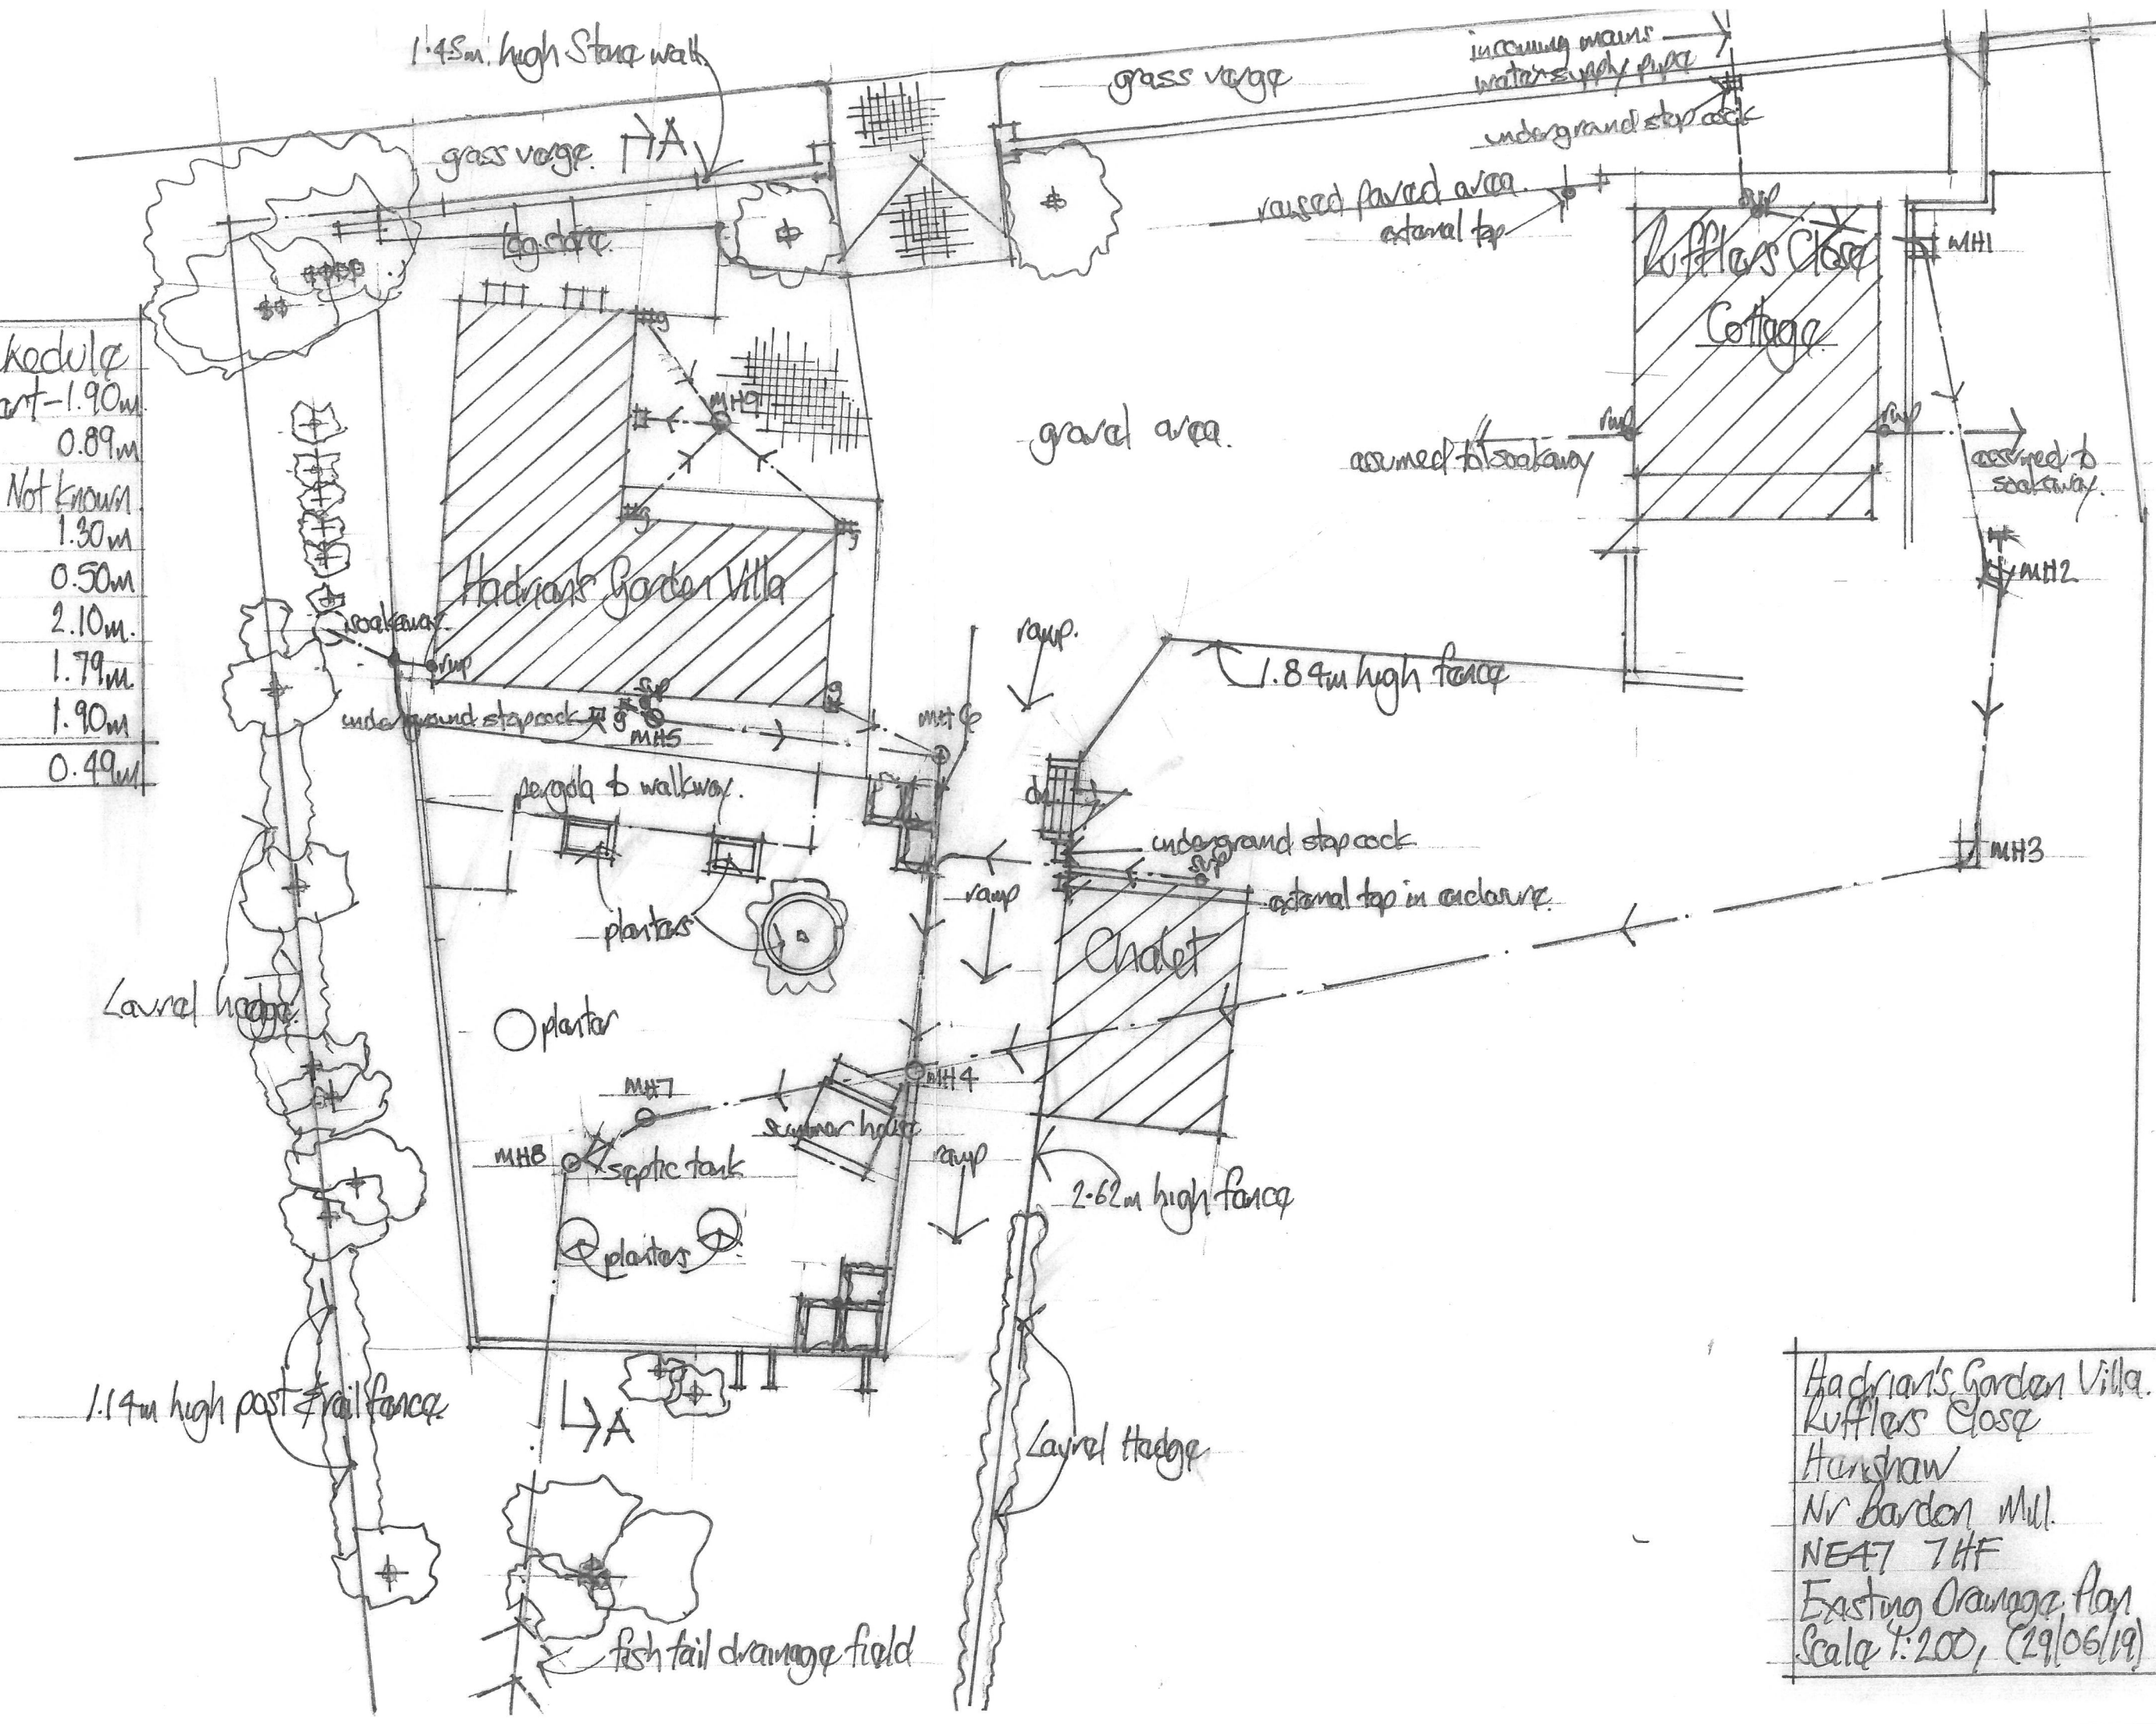 1.45m high Stone wall
incoming mains
water supply pipe
grass verge
underground stop cock
grass verge
A
raised paved area
external tap
svp
log store
Rufflers Close
Cottage
MH1
kedule
art-1.90m
0.89m
Not Known
1.30m
0.50m
2.10m.
1.79m
1.90m
0.49m
g
MH9
gravel area.
rwp
rwp
assumed to soakaway
assumed to
soakaway.
g
g
Hadrian's Garden Villa
MH2
soakaway
rwp
ramp.
1.84m high fence
svp
g
underground stopcock
g
MH5
MH6
pergola to walkway.
dn
underground stopcock
svp
MH3
ramp
external tap in enclosure.
planters
Chalet
Laurel hedge
planter
MH7
MH4
summer house
MH8
septic tank
ramp
2.62m high fence
planters
1.14m high post & rail fence
A
Laurel Hedge
fish tail drainage field
Hadrian's Garden Villa.
Rufflers Close
Henshaw
Nr Bardon Mill.
NE47 7HF
Existing Drainage Plan
Scale 1:200, (29/06/19)